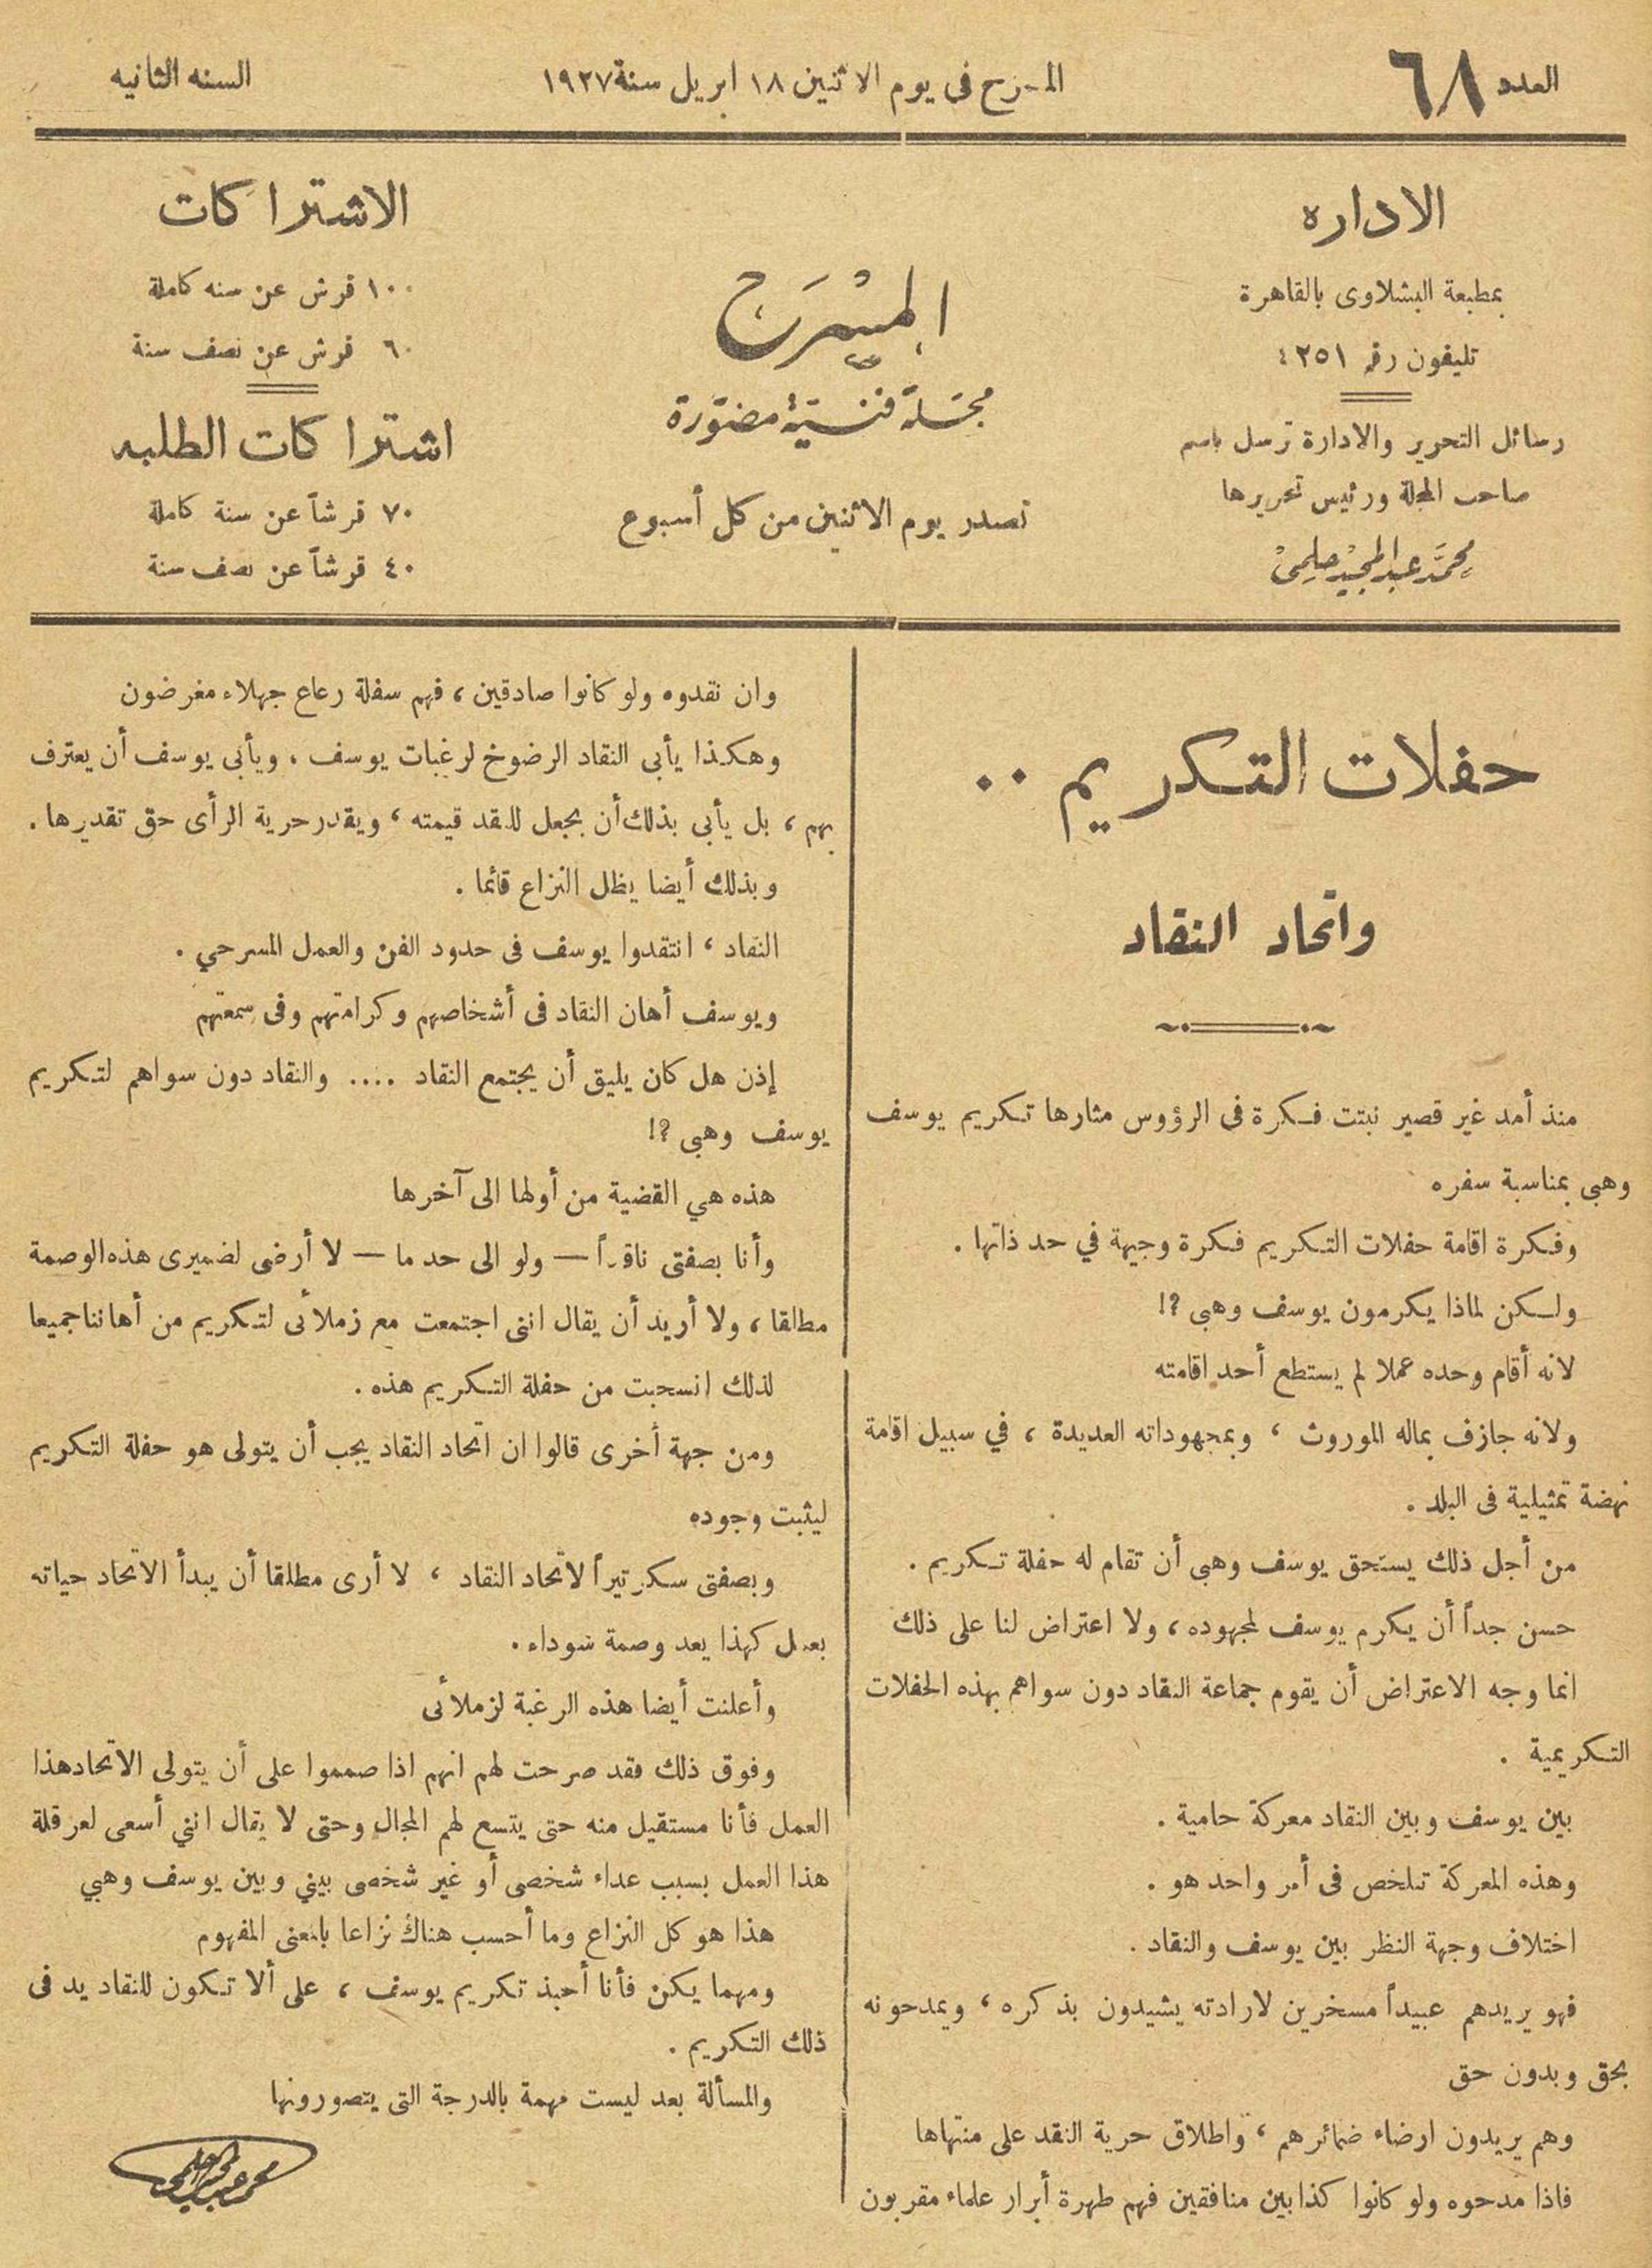 العدد ٦٨
المسرح في يوم الاثنين ١٨ ابريل سنة ١٩٢٧
السنه الثانيه
الاداره
بمطبعة البشلاوى بالقاهرة
تليفون رقم ٤٢٥١
رسائل التحرير والادارة ترسل باسم
صاحب المجلة ورئيس تحريرها
محمد عبد المجيد حلمى
المسرح
مجلة فنية مصورة
تصدر يوم الاثنين من كل أسبوع
الاشتراكات
١٠٠ قرش عن سنه كاملة
٦٠ قرش عن نصف سنة
اشتراكات الطلبه
٧٠ قرشاً عن سنة كاملة
٤٠ قرشاً عن نصف سنة
حفلات التكريم ..
واتحاد النقاد
منذ أمد غير قصير نبتت فكرة فى الرؤوس مثارها تكريم يوسف
وهبى بمناسبة سفره
وفكرة اقامة حفلات التكريم فكرة وجيهة في حد ذاتها .
ولكن لماذا يكرمون يوسف وهبى ?!
لانه أقام وحده عملا لم يستطع أحد اقامته
ولانه جازف بماله الموروث ، وبمجهوداته العديدة ، في سبيل اقامة
نهضة تمثيلية فى البلد .
من أجل ذلك يستحق يوسف وهبى أن تقام له حفلة تكريم .
حسن جداً أن يكرم يوسف لمجهوده ، ولا اعتراض لنا على ذلك
انما وجه الاعتراض أن يقوم جماعة النقاد دون سواهم بهذه الحفلات
التكريمية .
بين يوسف وبين النقاد معركة حامية .
وهذه المعركة تتلخص فى أمر واحد هو .
اختلاف وجهة النظر بين يوسف والنقاد .
فهو يريدهم عبيداً مسخرين لارادته يشيدون بذكره ، ويمدحونه
بحق وبدون حق
وهم يريدون ارضاء ضمائرهم ، واطلاق حرية النقد على منتهاها
فاذا مدحوه ولو كانوا كذابين منافقين فهم طهرة أبرار علماء مقربون
وان نقدوه ولو كانوا صادقين ، فهم سفلة رعاع جهلاء مغرضون
وهكذا يأبى النقاد الرضوخ لرغبات يوسف . ويأبى يوسف أن يعترف
بهم ، بل يأبى بذلك أن يجعل للنقد قيمته ، ويقدر حرية الرأى حق تقديرها .
وبذلك أيضا يظل النزاع قائما .
النقاد ، انتقدوا يوسف فى حدود الفن والعمل المسرحي .
ويوسف أهان النقاد فى أشخاصهم وكرامتهم وفى سمعتهم
إذن هل كان يليق أن يجتمع النقاد .... والنقاد دون سواهم لتكريم
يوسف وهبى ?!
هذه هي القضية من أولها الى آخرها
وأنا بصفتى ناقداً — ولو الى حد ما — لا أرضى لضميرى هذه الوصمة
مطلقا ، ولا أريد أن يقال انني اجتمعت مع زملائى لتكريم من أهاننا جميعا
لذلك انسحبت من حفلة التكريم هذه .
ومن جهة أخرى قالوا ان اتحاد النقاد يجب أن يتولى هو حفلة التكريم
ليثبت وجوده
وبصفتى سكرتيراً لاتحاد النقاد ، لا أرى مطلقا أن يبدأ الاتحاد حياته
بعمل كهذا يعد وصمة سوداء .
وأعلنت أيضا هذه الرغبة لزملائى
وفوق ذلك فقد صرحت لهم انهم اذا صمموا على أن يتولى الاتحاد هذا
العمل فأنا مستقيل منه حتى يتسع لهم المجال وحتى لا يقال انني أسعى لعرقلة
هذا العمل بسبب عداء شخصى أو غير شخصى بيني وبين يوسف وهبي
هذا هو كل النزاع وما أحسب هناك نزاعا بالمعنى المفهوم
ومهما يكن فأنا أحبذ تكريم يوسف ، على ألا تكون للنقاد يد فى
ذلك التكريم .
والمسألة بعد ليست مهمة بالدرجة التى يتصورونها
محمد عبد المجيد حلمى